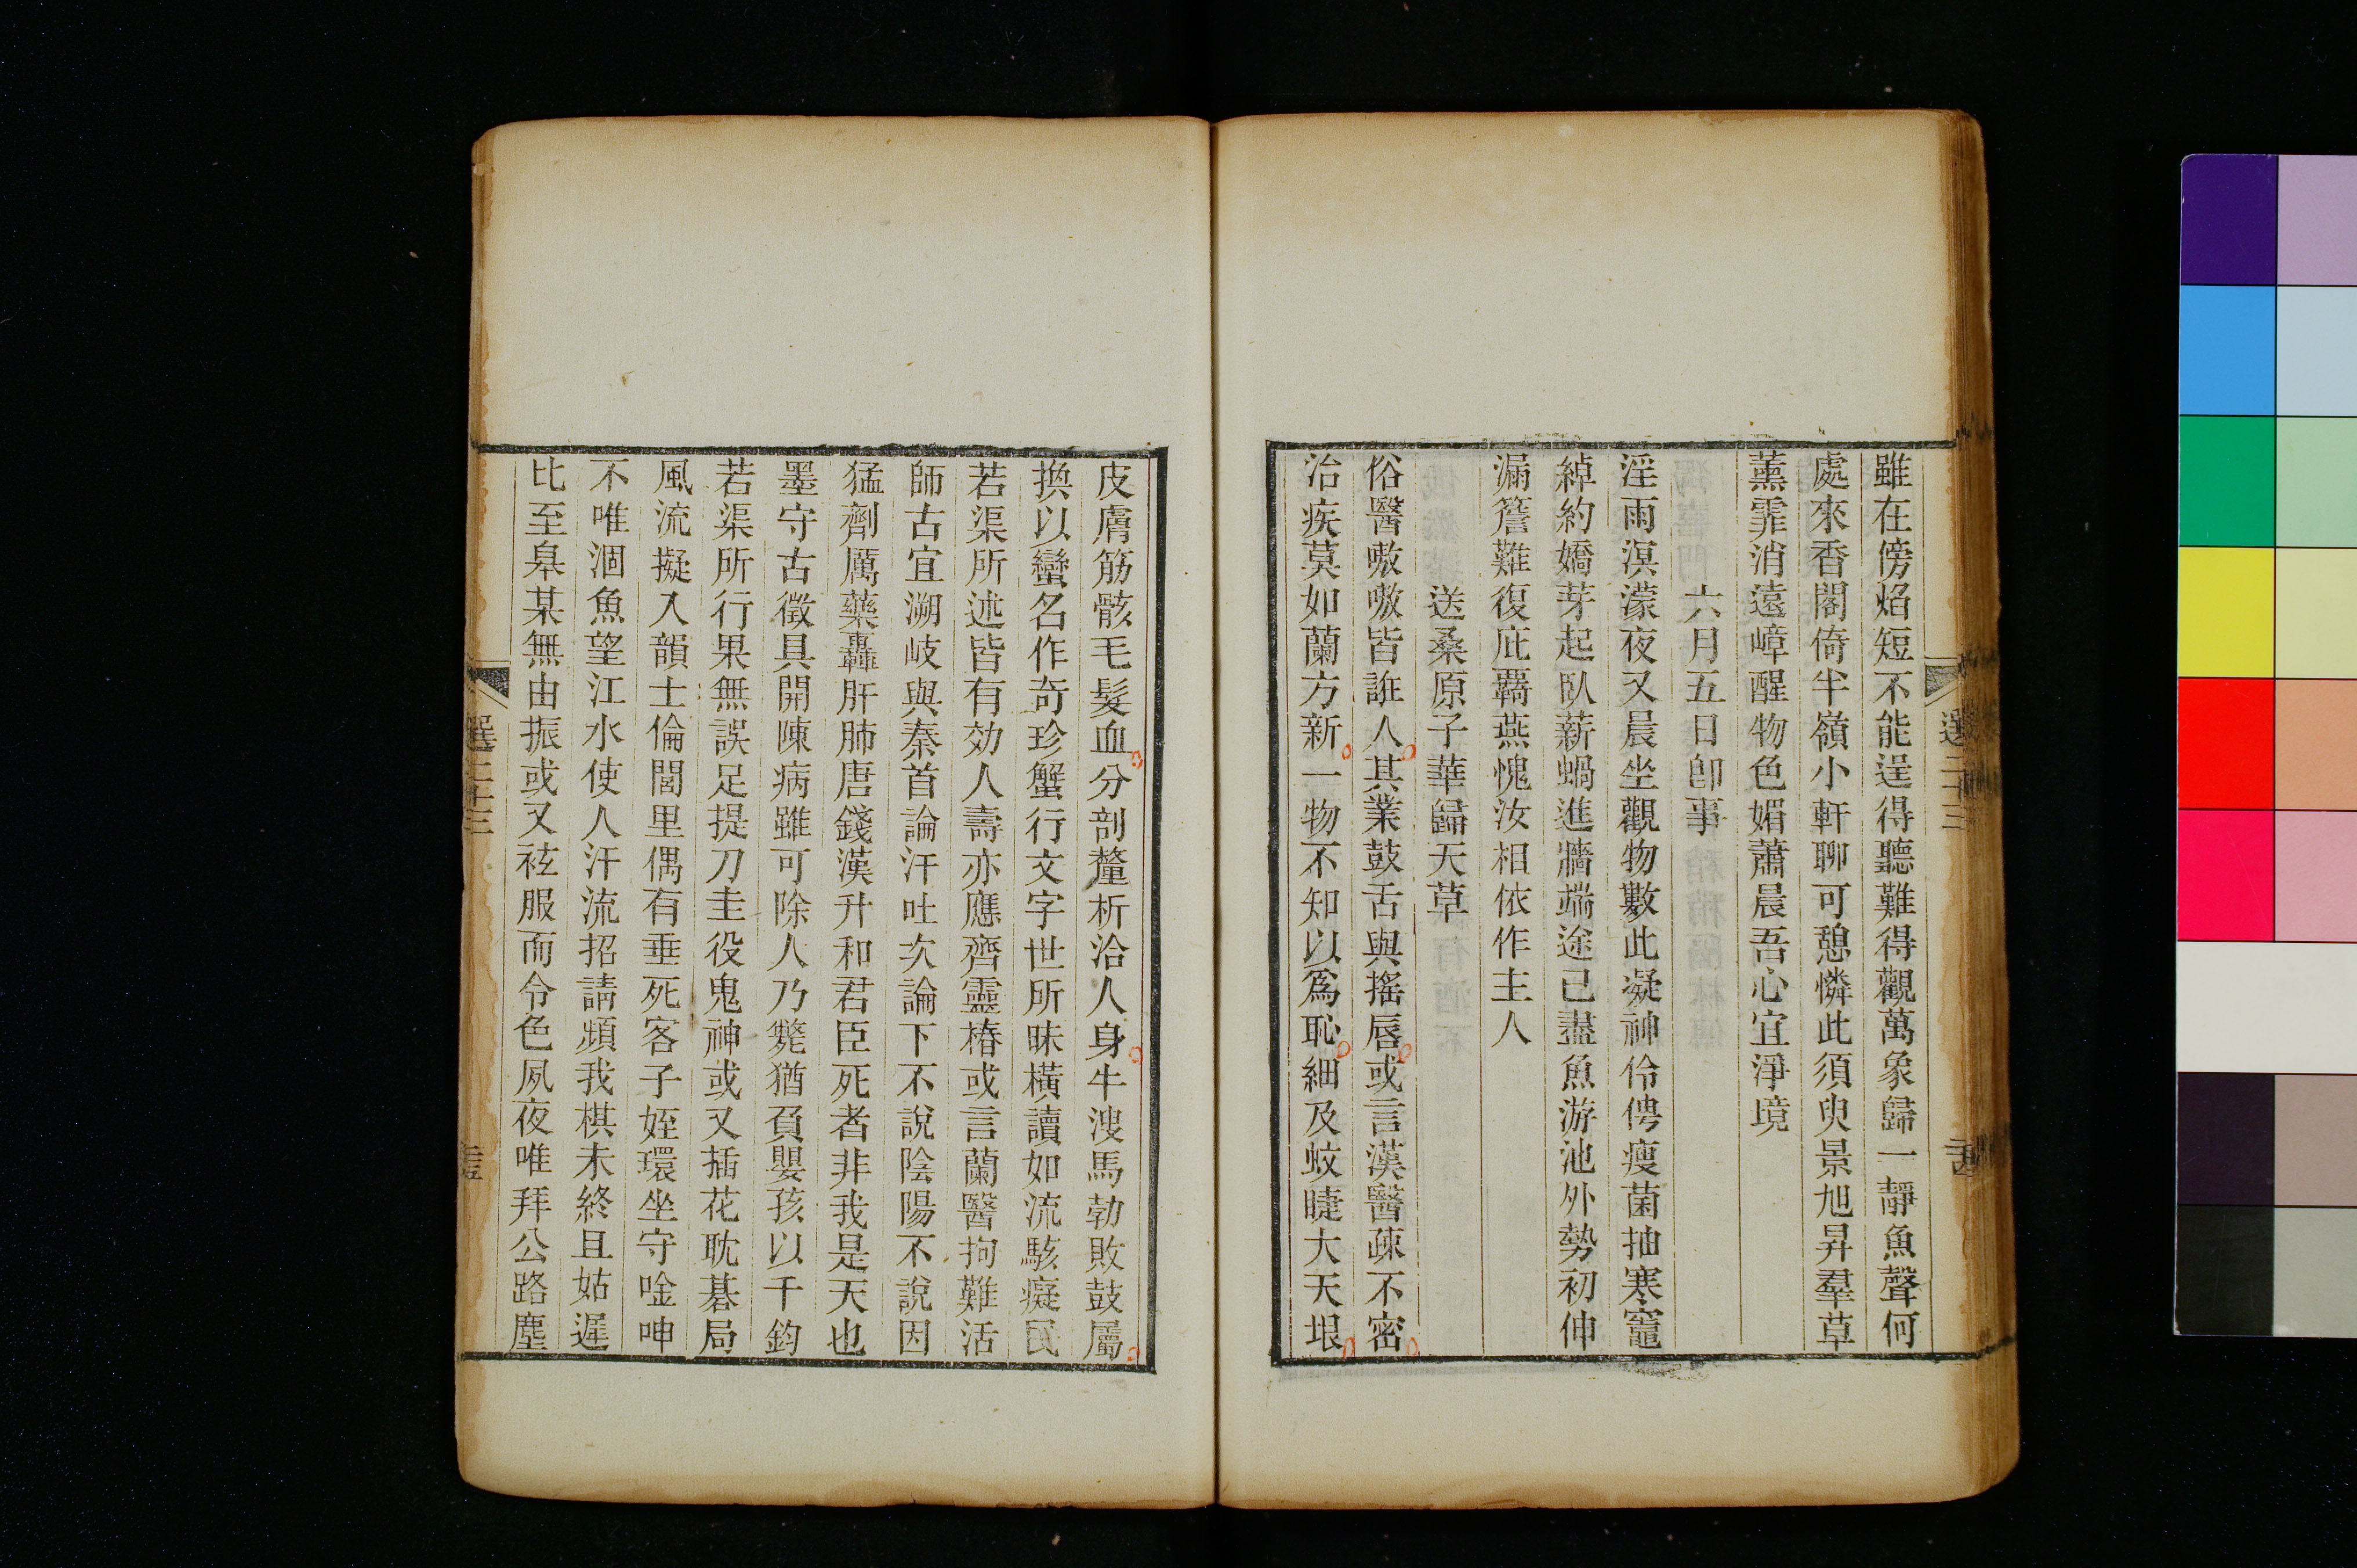 雖在傍焰短不能逞得聽難得觀萬象歸一靜魚聲何
處來香閣倚半嶺小軒聊可憩憐此須臾景旭昇羣草
薰霏消遠嶂醒物色媚蕭晨吾心宜淨境
六月五日卽事
淫雨溟濛夜又晨坐觀物數此凝神伶俜瘦菌抽寒竈
綽約嬌芽起臥薪蝸進牆端途已盡魚游池外勢初伸
漏簷難復庇覊燕愧汝相依作主人
送桑原子華歸天草
俗醫嗷嗷皆誑人其業鼓舌與搖唇或言漢醫疎不密
治疾莫如蘭方新一物不知以爲恥細及蚊睫大天垠
選二十三
皮膚筋骸毛髮血分剖釐析洽人身牛溲馬勃敗鼓屬
換以蠻名作奇珍蟹行文字世所昧橫讀如流駭癡民
若渠所述皆有効人壽亦應齊靈椿或言蘭醫拘難活
師古宜溯岐與秦首論汗吐次論下不說陰陽不說因
猛劑厲藥轟肝肺唐錢漢升和君臣死者非我是天也
墨守古徵具開陳病雖可除人乃斃猶負嬰孩以千鈞
若渠所行果無誤足提刀圭役鬼神或又插花耽碁局
風流擬入韻士倫閭里偶有垂死客子姪環坐守唫呻
不唯涸魚望江水使人汗流招請頻我棋未終且姑遲
比至皋某無由振或又袨服而令色夙夜唯拜公路塵
選二十三